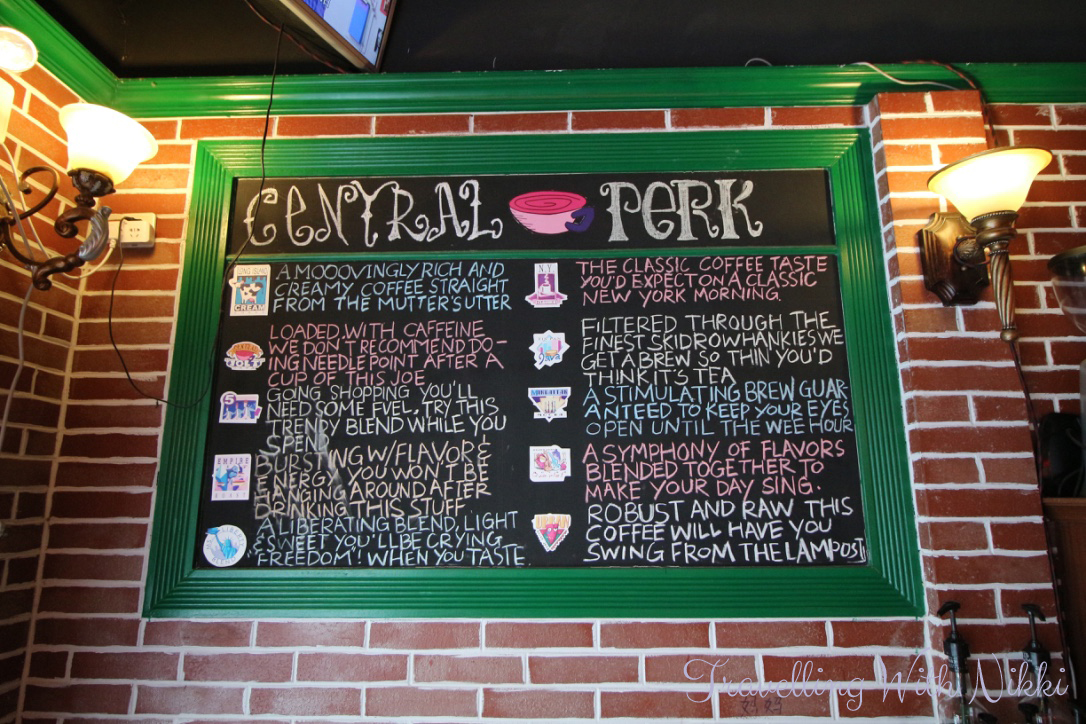 CENTRAL PERK
LONG ISLAND
CREAM
A MOOOVINGLY RICH AND
CREAMY COFFEE STRAIGHT
FROM THE MUTTER'S UTTER
LOADED WITH CAFFEINE
WE DON'T RECOMMEND DO-
ING NEEDLEPOINT AFTER A
CUP OF THIS JOE
5
GOING SHOPPING YOU'LL
NEED SOME FUEL, TRY THIS
TRENDY BLEND WHILE YOU
SPEN
EMPIRE
ROAST
BURSTING W/FLAVOR &
ENERGY YOU WON'T BE
HANGING AROUND AFTER
DRINKING THIS STUFF
A LIBERATING BLEND, LIGHT
& SWEET YOU'LL BE CRYING
FREEDOM! WHEN YOU TASTE.
N.Y.
THE CLASSIC COFFEE TASTE
YOU'D EXPECT ON A CLASSIC
NEW YORK MORNING.
Java
FILTERED THROUGH THE
FINEST SKIDROW HANKIES WE
GET A BREW SO THIN YOU'D
THINK IT'S TEA
A STIMULATING BREW GUAR-
ANTEED TO KEEP YOUR EYES
OPEN UNTIL THE WEE HOUR
A SYMPHONY OF FLAVORS
BLENDED TOGETHER TO
MAKE YOUR DAY SING.
ROBUST AND RAW THIS
COFFEE WILL HAVE YOU
SWING FROM THE LAMPOST
Travelling With Nikki